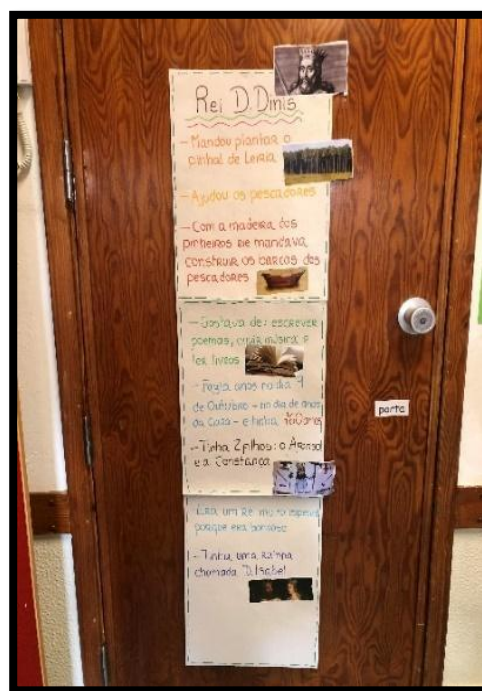 Rei D. Dinis
- Mandou plantar o
pinhal de Leiria
- Ajudou os pescadores
- Com a madeira dos
pinheiros ele mandava
construir os barcos dos
pescadores
- Gostava de: escrever
poemas, ouvir música e
ler livros
- Fazia anos no dia 9
de Outubro - no dia de anos
da Casa - e tinha anos
- Tinha 2 filhos: o Afonso
e a Constança
Era um Rei muito
porque era bondoso
- Tinha uma rainha
chamada D. Isabel
porta